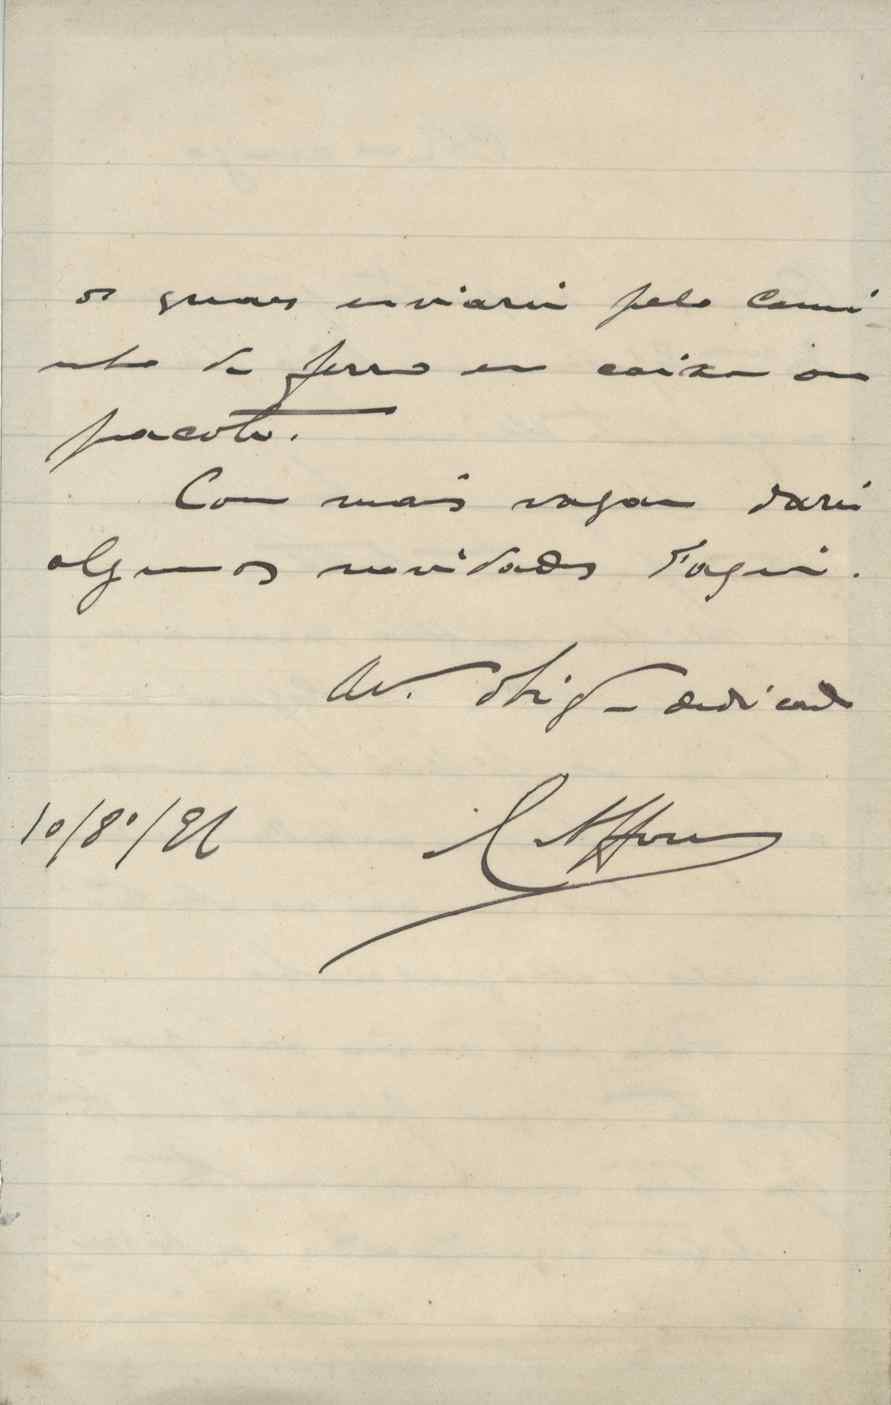 os quaes enviarei pelo cami
nho de ferro em caixa ou
pacote.
Com mais vagar darei
algumas novidades d'aqui.
obrig dedicado
10/8º/96